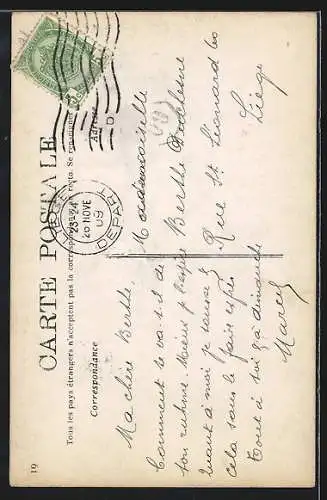 CARTE POSTALE
Tous les pays étrangers n'acceptent pas la correspondance au recto. Se renseigner
Correspondance
Adresse
LIEGE
23-24
26 NOVE
09
DEPART
Ma chère Berthe,
Comment te va-t-il de
ton rhume. Mieux j'espère
quant à moi je tousse
cela sans le faire exprès
Tout à toi, à dimanche
Marcel
Mademoiselle
Berthe
Rue St Léonard
Liège
19